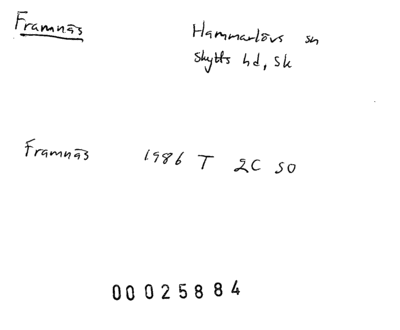 Framnäs
Hammarlövs sn
Skytts hd, Sk
Framnäs 1986 T 2C SO
00025884